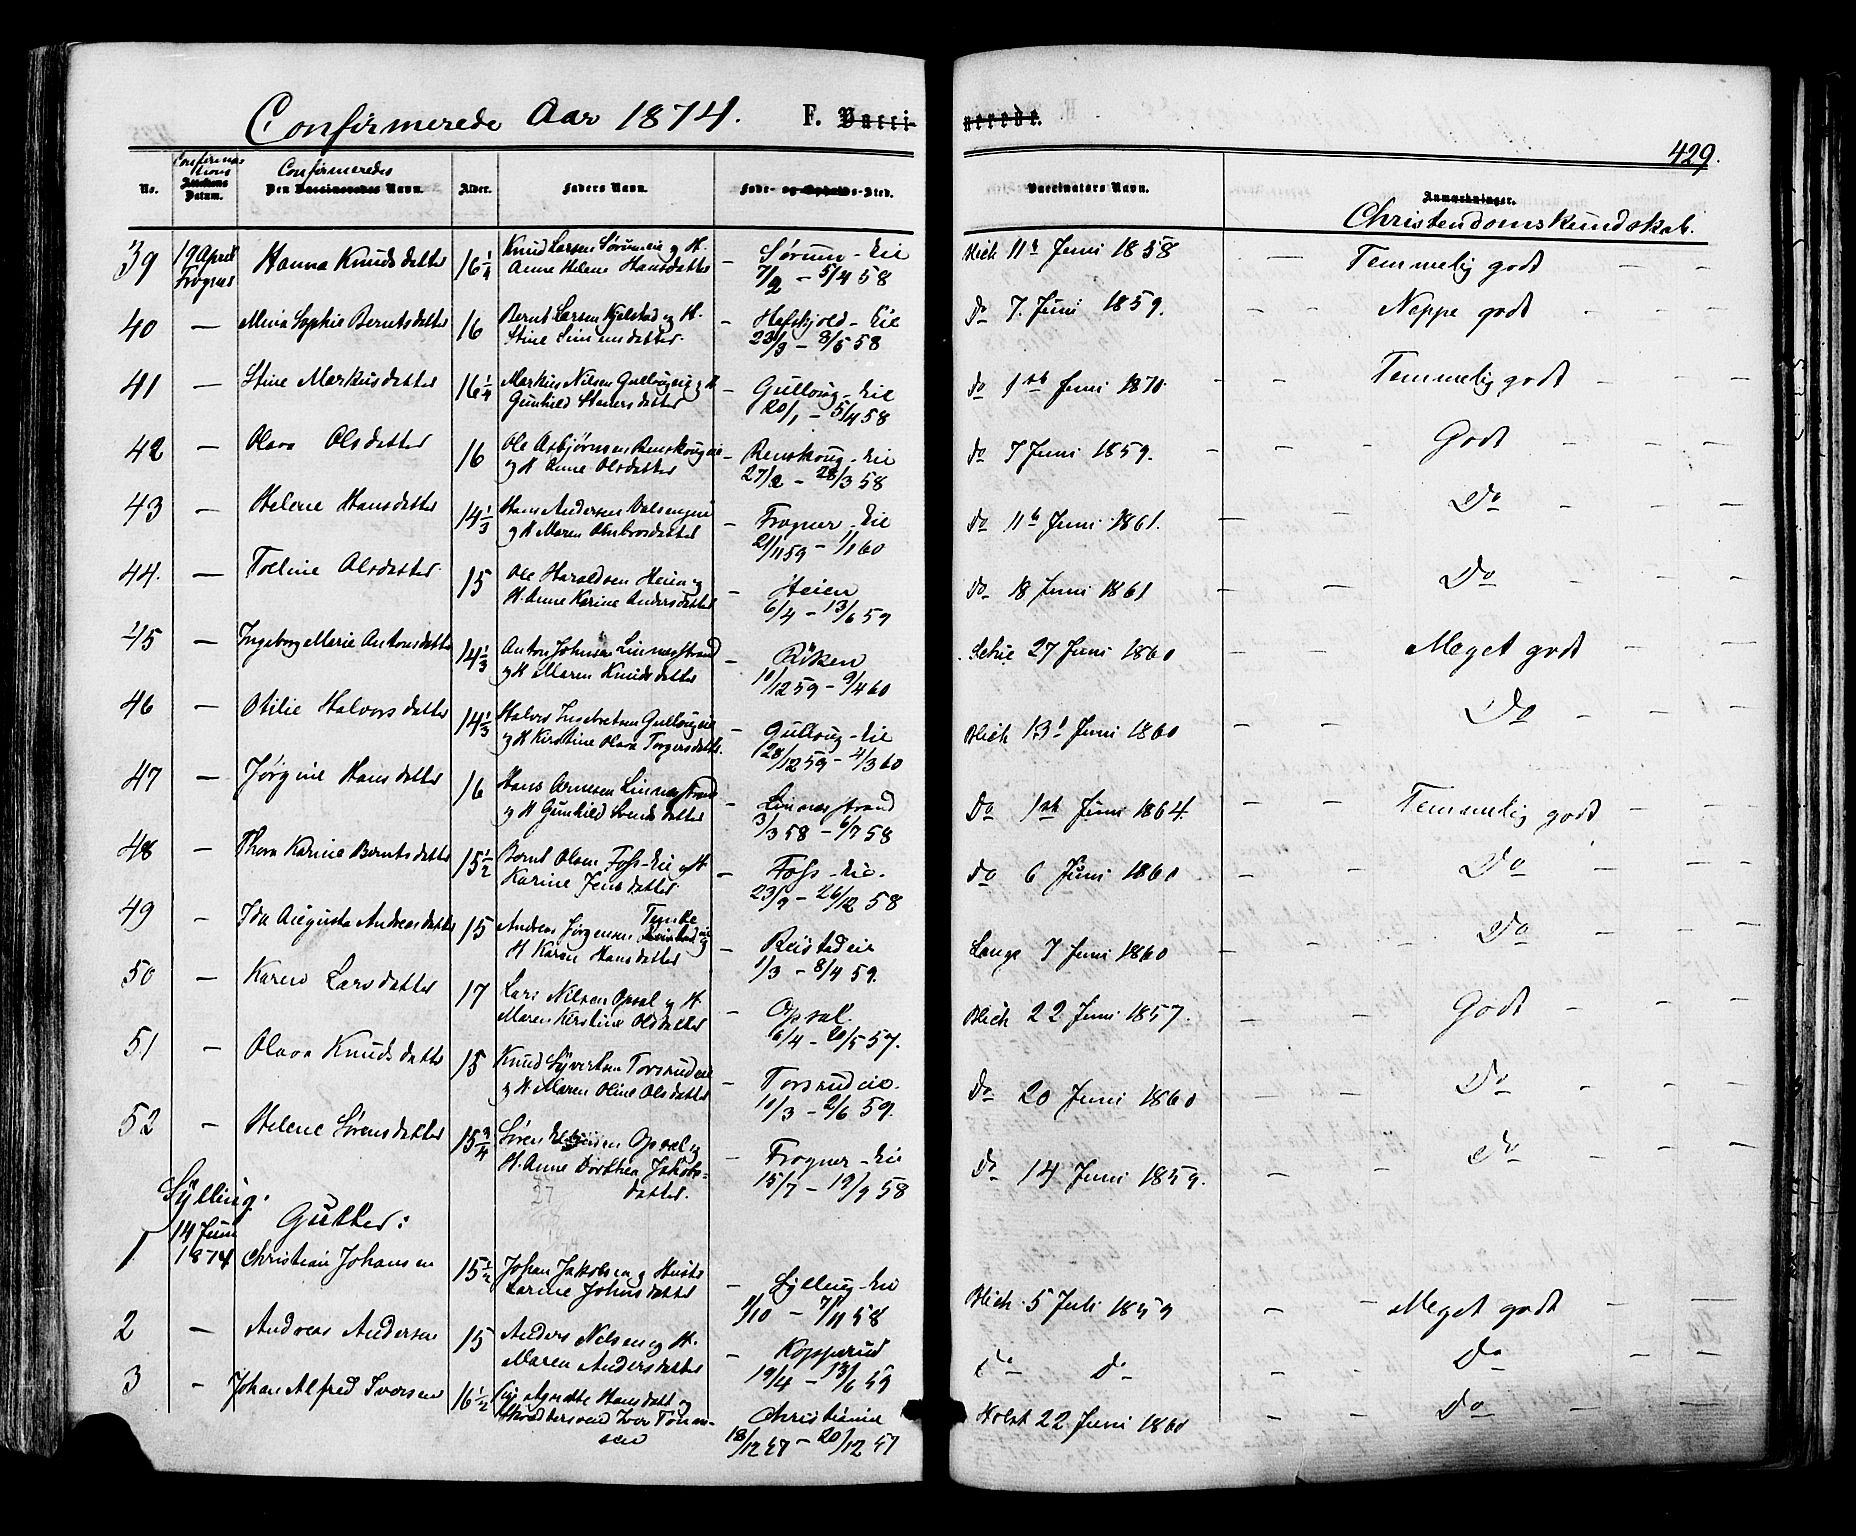 Confirmerede Aar 1874. F. Vacci-nerede.
429.
No. Confirmations Attestens Datum. Confirmeredes Den Vaccineredes Navn. Alder. Faders Navn. Føde- og Opholds-Sted. Vaccinators Navn. Anmærkninger. Christendomskundskab.
39 19 April Hanna Knudsdatter 16 1/4 Knud Larsen Sørumeie og H. — Sørum-Eie Blich 11te Juni 1858 — Temmelig godt — —
Frogner Anne Helene Hansdatter 7/2 – 5/4 58
40 — Mina Sophie Berntsdatter 16 Bernt Larsen Kjelstad og H. — Hafskjold-Eie Do 7. Juni 1859. — — Neppe godt — —
Stine Simensdatter. 22/3 – 8/5 58
41 — Stine Markusdatter 16 1/4 Markus Nilsen Gullougeie og H — Gulloug-Eie Do 1ste Juni 1870. — — Temmelig godt — —
Gunhild Steners datter 20/1 – 5/4 58
42 — Olava Olsdatter 16 Ole Asbjørnsen Renskougeie — Renskoug-Eie Do 7 Juni 1859. — — Godt — —
og H Anne Olsdatter 27/2 – 28/3 58
43 — Helene Hansdatter 14 1/3 Hans Andersen — Frogner-Eie Do 11te Juni 1861. — — Do — —
og H Maren 21/11 59 – 1/1 60
44. — Toline Olsdatter 15 Ole Haraldsen Heien og — Heien Do 18 Juni 1861 — — Do — —
H. Anne Karine Andersdatter 6/4 – 13/6 59
45 — Ingeborg Marie Antonsdatter 14 1/3 Anton Johnsen Linnesstrand — Røken 27 Juni 1860 — — Meget godt — —
og H Maren Knudsdatter 10/12 59 – 9/4 60
46 — Otilie Halvorsdatter 14 1/3 Halvor Ingebretsen Gullougeie — Gulloug-Eie Blich 13de Juni 1860 — — Do — —
og H Kirstine Olava Torgersdatter. 28/12 59 – 4/3 60
47 — Jørgine Hansdatter 16 Hans Arnesen Linnesstrand — Linnesstrand Do 1ste Juni 1864. — — Temmelig godt — —
og H Gunhild Svends datter 3/3 58 – 6/7 58
48 — Thora Karine Berntsdatter 15 1/2 Bernt Olsen Foss-Eie og H. — Foss-Eie. Do 6 Juni 1860 — — Do — —
Karine Jensdatter. 23/9 – 26/12 58
49 — Ida Augusta Andreasdatter 15 Andreas Jørgensen — Reistadeie Lange 7 Juni 1860 — — Do — —
H Karen Hansdatter 1/3 – 8/4 59.
50 — Karen Larsdatter 17 Lars Nilsen Opsal og H. — Opsal. Blich 22 Juni 1857. — — Godt — —
Maren Kirstine Olsdatter 6/4 – 6/5 57.
51 — Olava Knudsdatter 15 Knud Syvertsen Torsrudeie — Torsrudeie. Do 20 Juni 1860 — — Do — —
og H. Maren Oline Olsdatter 10/3 – 2/6 59.
52 — Helene Sørensdatter 15 3/4 Søren Opsal og — Frogner-Eie Do 14 Juni 1859. — — Do — —
H. Anne Dorthea Jakobs- 15/7 – 19/9 58
datter.
27
Sylling.
14 Juni Gutter:
1 1874 Christian Johansen 15 1/2 Johan Jakobsen og Hustr — Sylling-Eie Blich. 5 Juli 1859 — — Meget godt — —
Karine Johnsdatter 9/10 – 7/11 58
2 — Andreas Andersen 15 Anders Nilsen og H. — Kopperud Do Do — — Do — —
Maren Andersdatter 19/4 – 13/6 59
3 — Johan Alfred Iversen 16 1/2 Hansdatt og — Christiania Holst 22 Juni 1860 — — Do — —
Skræddersvend Iver Johan- 18/12 57 – 20/12 57
sen